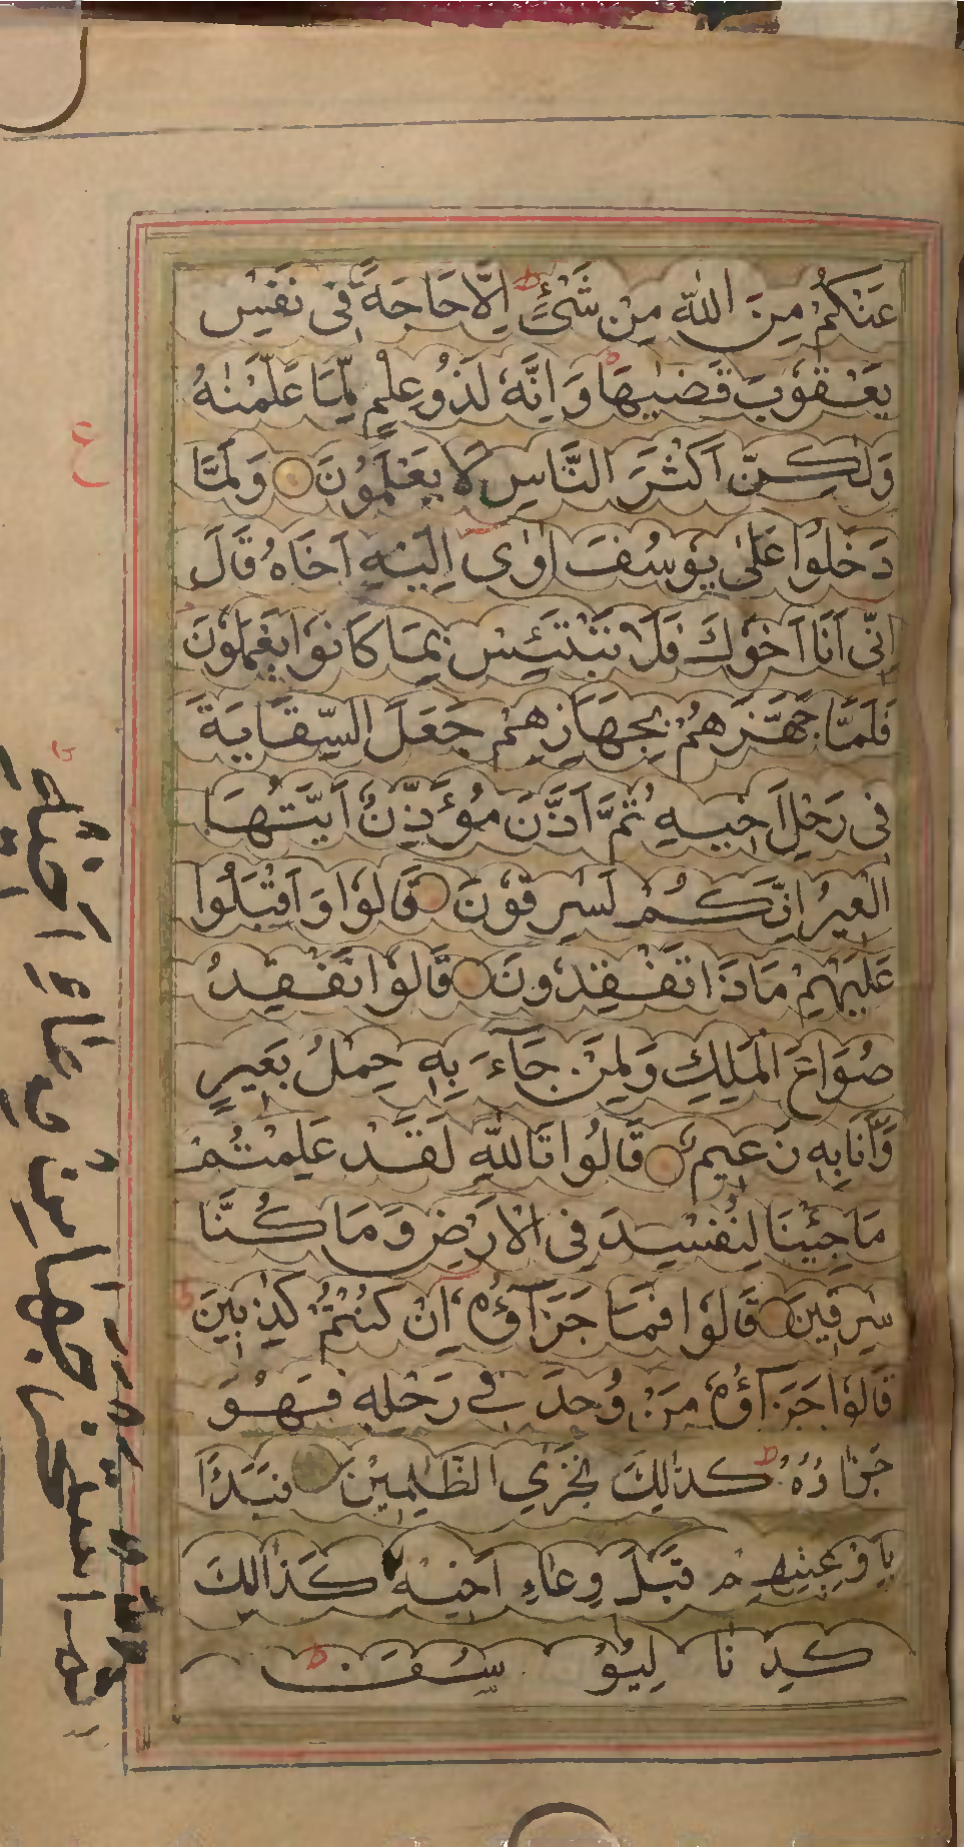 عَنْكُمْ مِنَ اللّٰهِ مِنْ شَیْءٍ ط اِلَّا حَاجَةً فِی نَفْسِ
یَعْقُوْبَ قَضٰیهَا ط وَ اِنَّهٗ لَذُوْ عِلْمٍ لِّمَا عَلَّمْنٰهُ
وَلٰكِنَّ اَكْثَرَ النَّاسِ لَا یَعْلَمُوْنَ وَلَمَّا
دَخَلُوْا عَلٰی یُوْسُفَ اٰوٰی اِلَیْهِ اَخَاهُ قَالَ
اِنِّی اَنَا اَخُوْكَ فَلَا تَبْتَئِسْ بِمَا كَانُوْا یَعْمَلُوْنَ
فَلَمَّا جَهَّزَهُمْ بِجَهَازِهِمْ جَعَلَ السِّقَایَةَ
فِی رَحْلِ اَخِیهِ ثُمَّ اَذَّنَ مُؤَذِّنٌ اَیَّتُهَا
الْعِیرُ اِنَّكُمْ لَسٰرِقُوْنَ قَالُوْا وَ اَقْبَلُوْا
عَلَیْهِمْ مَاذَا تَفْقِدُوْنَ قَالُوْا نَفْقِدُ
صُوَاعَ الْمَلِكِ وَلِمَنْ جَآءَ بِهٖ حِمْلُ بَعِیرٍ
وَّ اَنَا بِهٖ زَعِیمٌ قَالُوْا تَاللّٰهِ لَقَدْ عَلِمْتُمْ
مَا جِئْنَا لِنُفْسِدَ فِی الْاَرْضِ وَ مَا كُنَّا
سٰرِقِینَ قَالُوْا فَمَا جَزَآؤُهٗ اِنْ كُنْتُمْ كٰذِبِینَ
قَالُوْا جَزَآؤُهٗ مَنْ وُجِدَ فِی رَحْلِهٖ فَهُوَ
جَزَاؤُهٗ ط كَذٰلِكَ نَجْزِی الظّٰلِمِیْنَ فَبَدَاَ
بِاَوْعِیَتِهِمْ قَبْلَ وِعَاءِ اَخِیْهِ كَذَالِكَ
كِدْنَا لِیُوْسُفَ ط
ع
اسْتَخْرَجَهَا مِنْ وِعَاءِ اَخِیْهِ